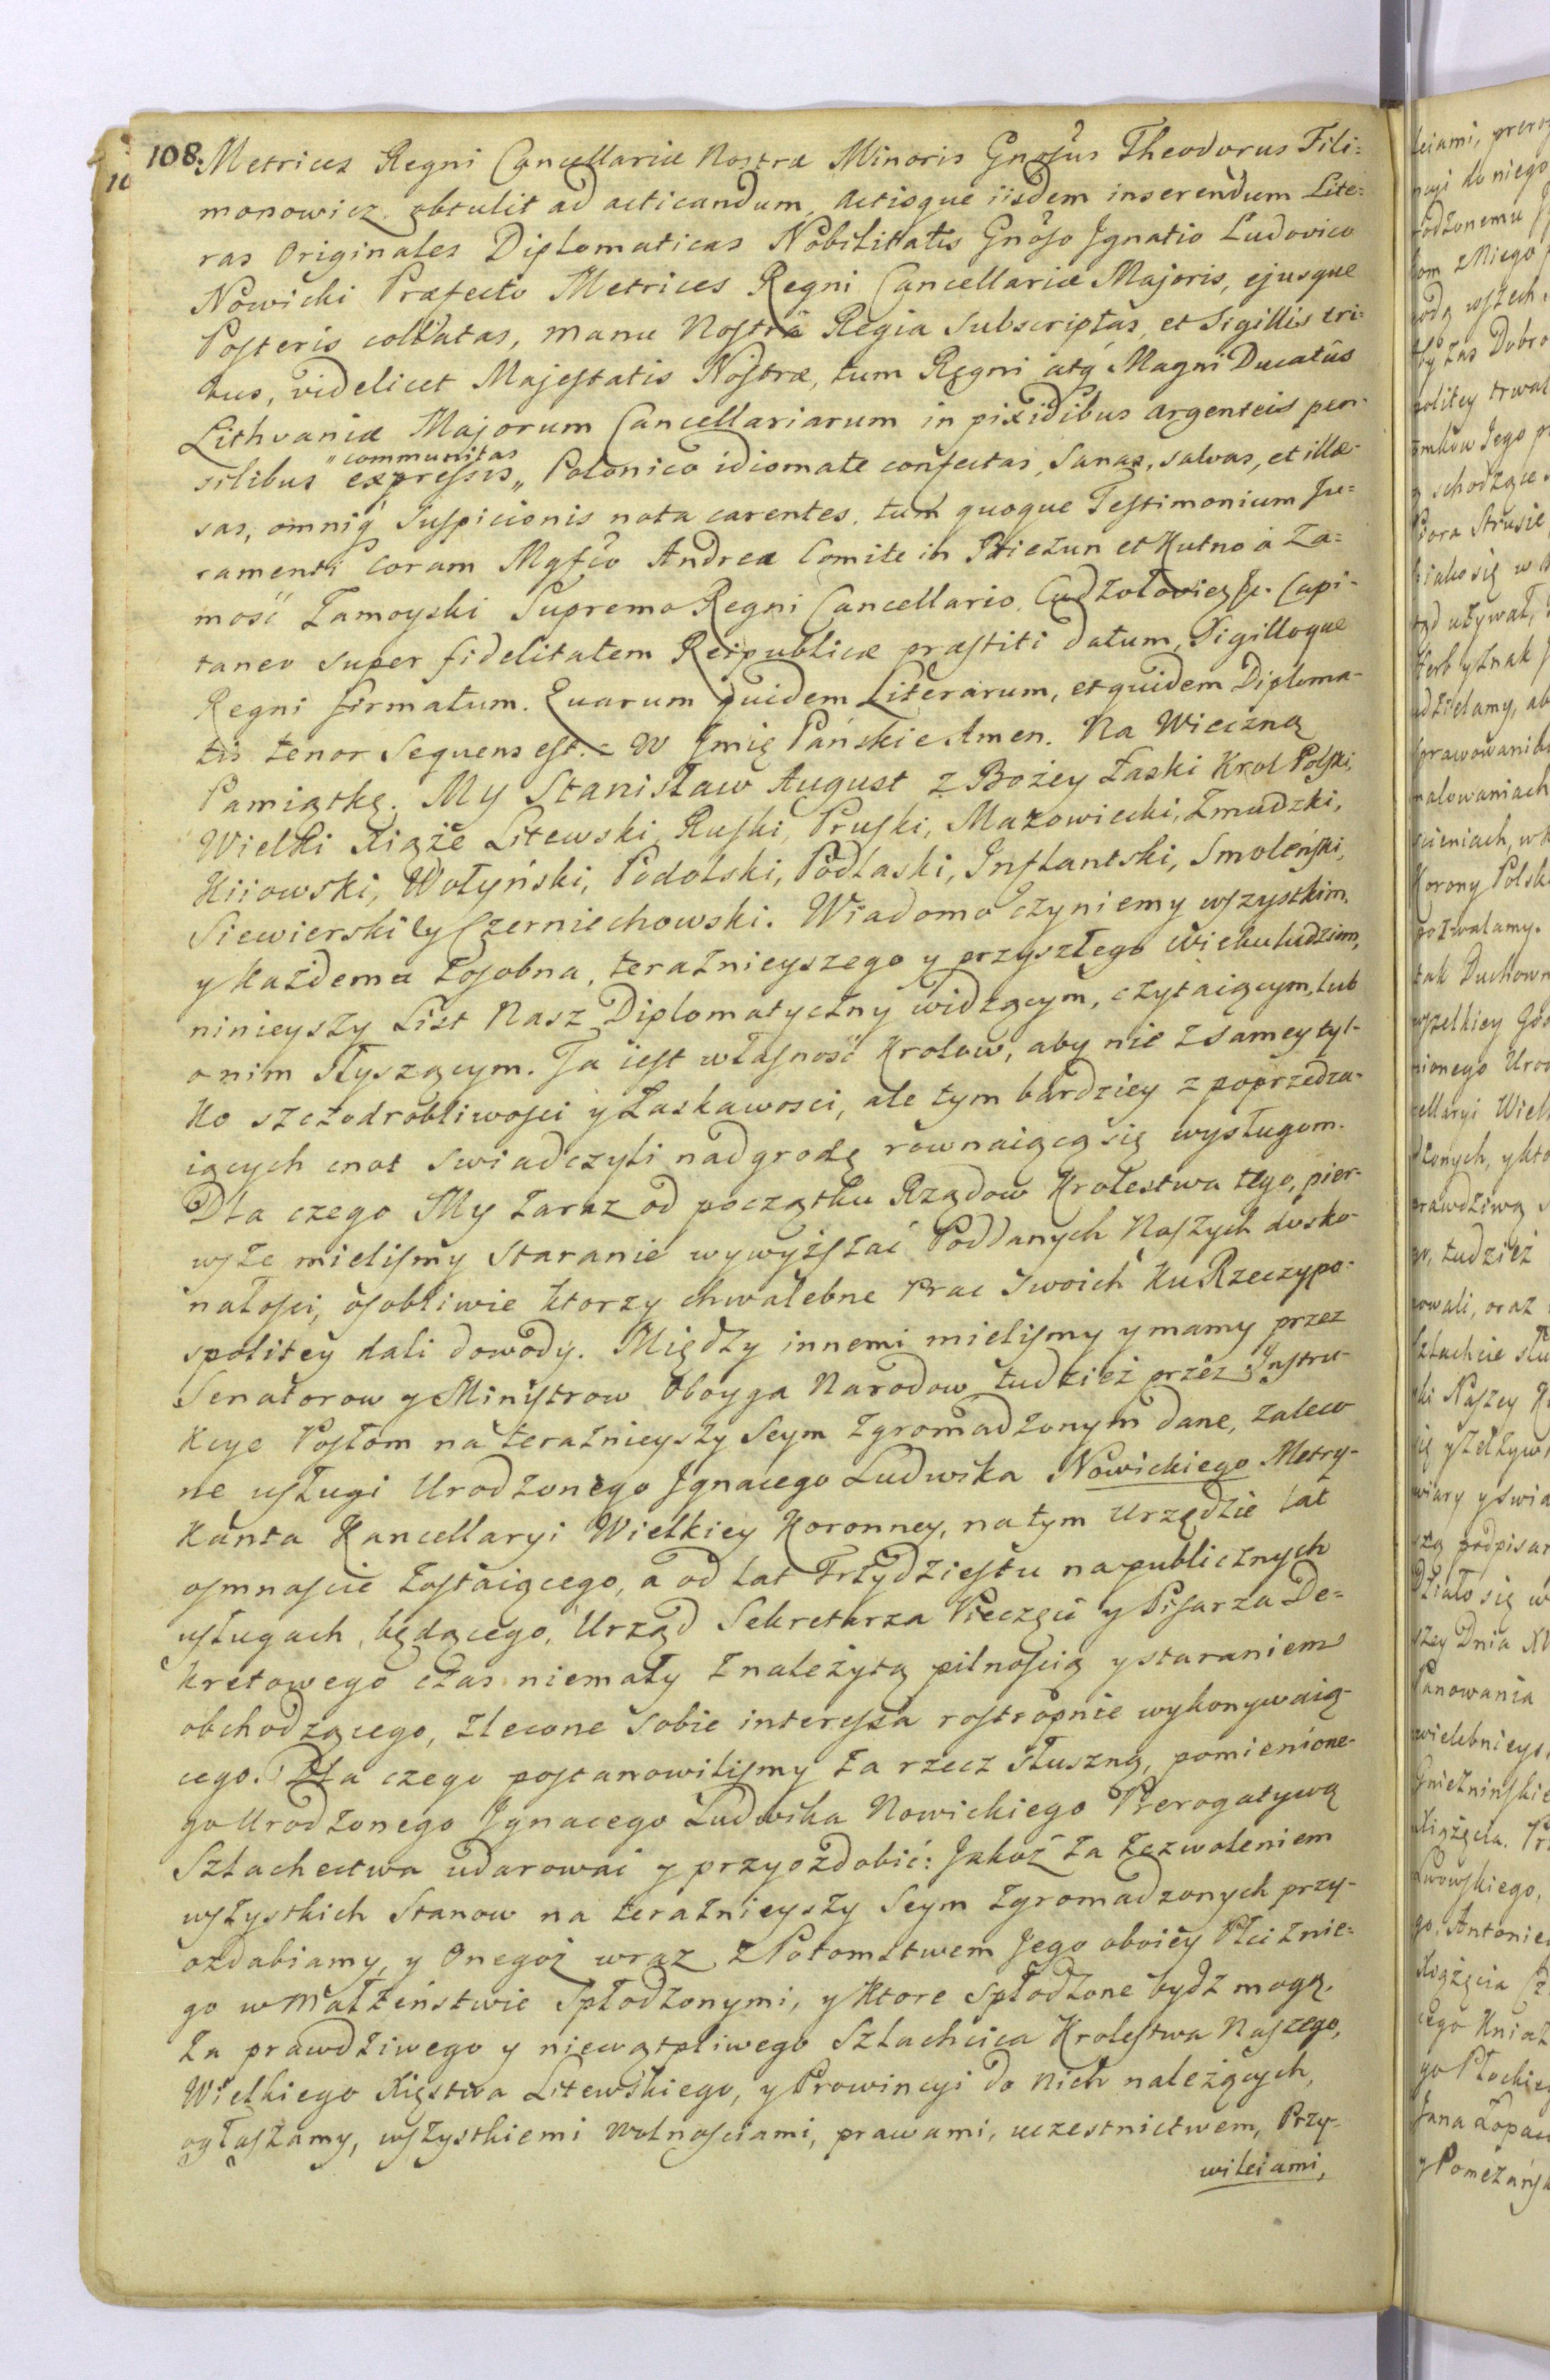 108. Metrices Regni Cancellariæ Nostræ Minoris Gnosus Theodorus Fili=
monowicz obtulit ad acticandum, actisque iisdem inserendum Lite=
ras Originales Diplomaticas Nobilitatis Gnoso Jgnatio Ludovico
Nowicki Præfecto Metrices Regni Cancellariæ Majoris, ejusque
Posteris collatas, manu Nostrâ Regia subscriptas, et Sigillis tri=
bus, videlicet Majestatis Nostræ, tum Regni atq Magni Ducatûs
Lithvaniæ Majorum Cancellariarum in pixidibus argenteis pen-
"communitas
silibus expressis „ Polonico idiomate confectas, Sanas, salvas, et illæ-
sas, omniq Suspicionis nota carentes, tum quoque Testimonium Ju=
ramenti coram Mgfco Andrea Comite in Zdziezun et Kutno à Za=
mość Zamoyski Supremo Regni Cancellario, &c. Capi-
taneo super fidelitatem Reipublicæ præstiti datum, Sigilloque
Regni firmatum. Quarum quidem Literarum, et quidem Diploma-
tis tenor Sequens est. = W Jmię Pańskie Amen. Na Wieczną
Pamiątkę. My Stanisław August z Bożey Łaski Krol Polski,
Wielki Xiąże Litewski, Ruski, Pruski, Mazowiecki, Zmudzki,
Kiiowski, Wołyński, Podolski, Podlaski, Jnflantski, Smoleński,
Siewierski y Czerniechowski. Wiadomo czyniemy wszystkim,
y każdemu zosobna, teraznieyszego y przyszłego wieku ludziom,
ninieyszy List Nasz Diplomatyczny widzącym, czytaiącym, lub
o nim słyszącym. Ta iest własność Krolow, aby nie z samey tyl-
ko szczodrobliwości y Łaskawosci, ale tym bardziey z poprzedza-
iących cnot swiadczyli nadgrodę rownaiącą się wysługom.
Dla czego My zaraz od początku Rządow Krolestwa tego, pier-
wsze mieliśmy staranie wywyższać Poddanych Naszych dosko-
nałości, osobliwie ktorzy chwalebne Prac swoich ku Rzeczypo-
spolitey dali dowody. Między innemi mieliśmy y mamy przez
Senatorow y Ministrow Oboyga Narodow tudzież przez Jnstru-
kcye Posłom na teraznieyszy Seym zgromadzonym dane, zalece
ne usługi Urodzonego Jgnacego Ludwika Nowickiego Metry-
kanta Kancellaryi Wielkiey Koronney, na tym Urzędzie lat
osmnascie zostaiącego, a od lat Trzydziestu na publicznych
usługach, będącego, Urząd Sekretarza Pieczęci y Pisarza De=
kretowego czas niemały z należytą pilnością y staraniem
obchodzącego, zlecone sobie interessa rostropnie wykonywaią-
cego. Dla czego postanowiliśmy za rzecz słuszną, pomienione-
go Urodzonego Jgnacego Ludwika Nowickiego Prerogatywą
Szlachectwa udarować y przyozdobić: Jakoż za zezwoleniem
wszystkich Stanow na teraznieyszy Seym zgromadzonych przy-
ozdabiamy, y Onegoż wraz z Potomstwem Jego oboiey Płci z nie=
go w Małżeństwie Spłodzonymi, y ktore Spłodzone bydz mogą,
za prawdziwego y niewątpliwego Szlachcica Krolestwa Naszego,
Wielkiego Xięstwa Litewskiego, y Prowincyi do nich należących,
ogłaszamy, wszystkiemi Wolnościami, prawami, uczestnictwem, Przy-
wileiami,